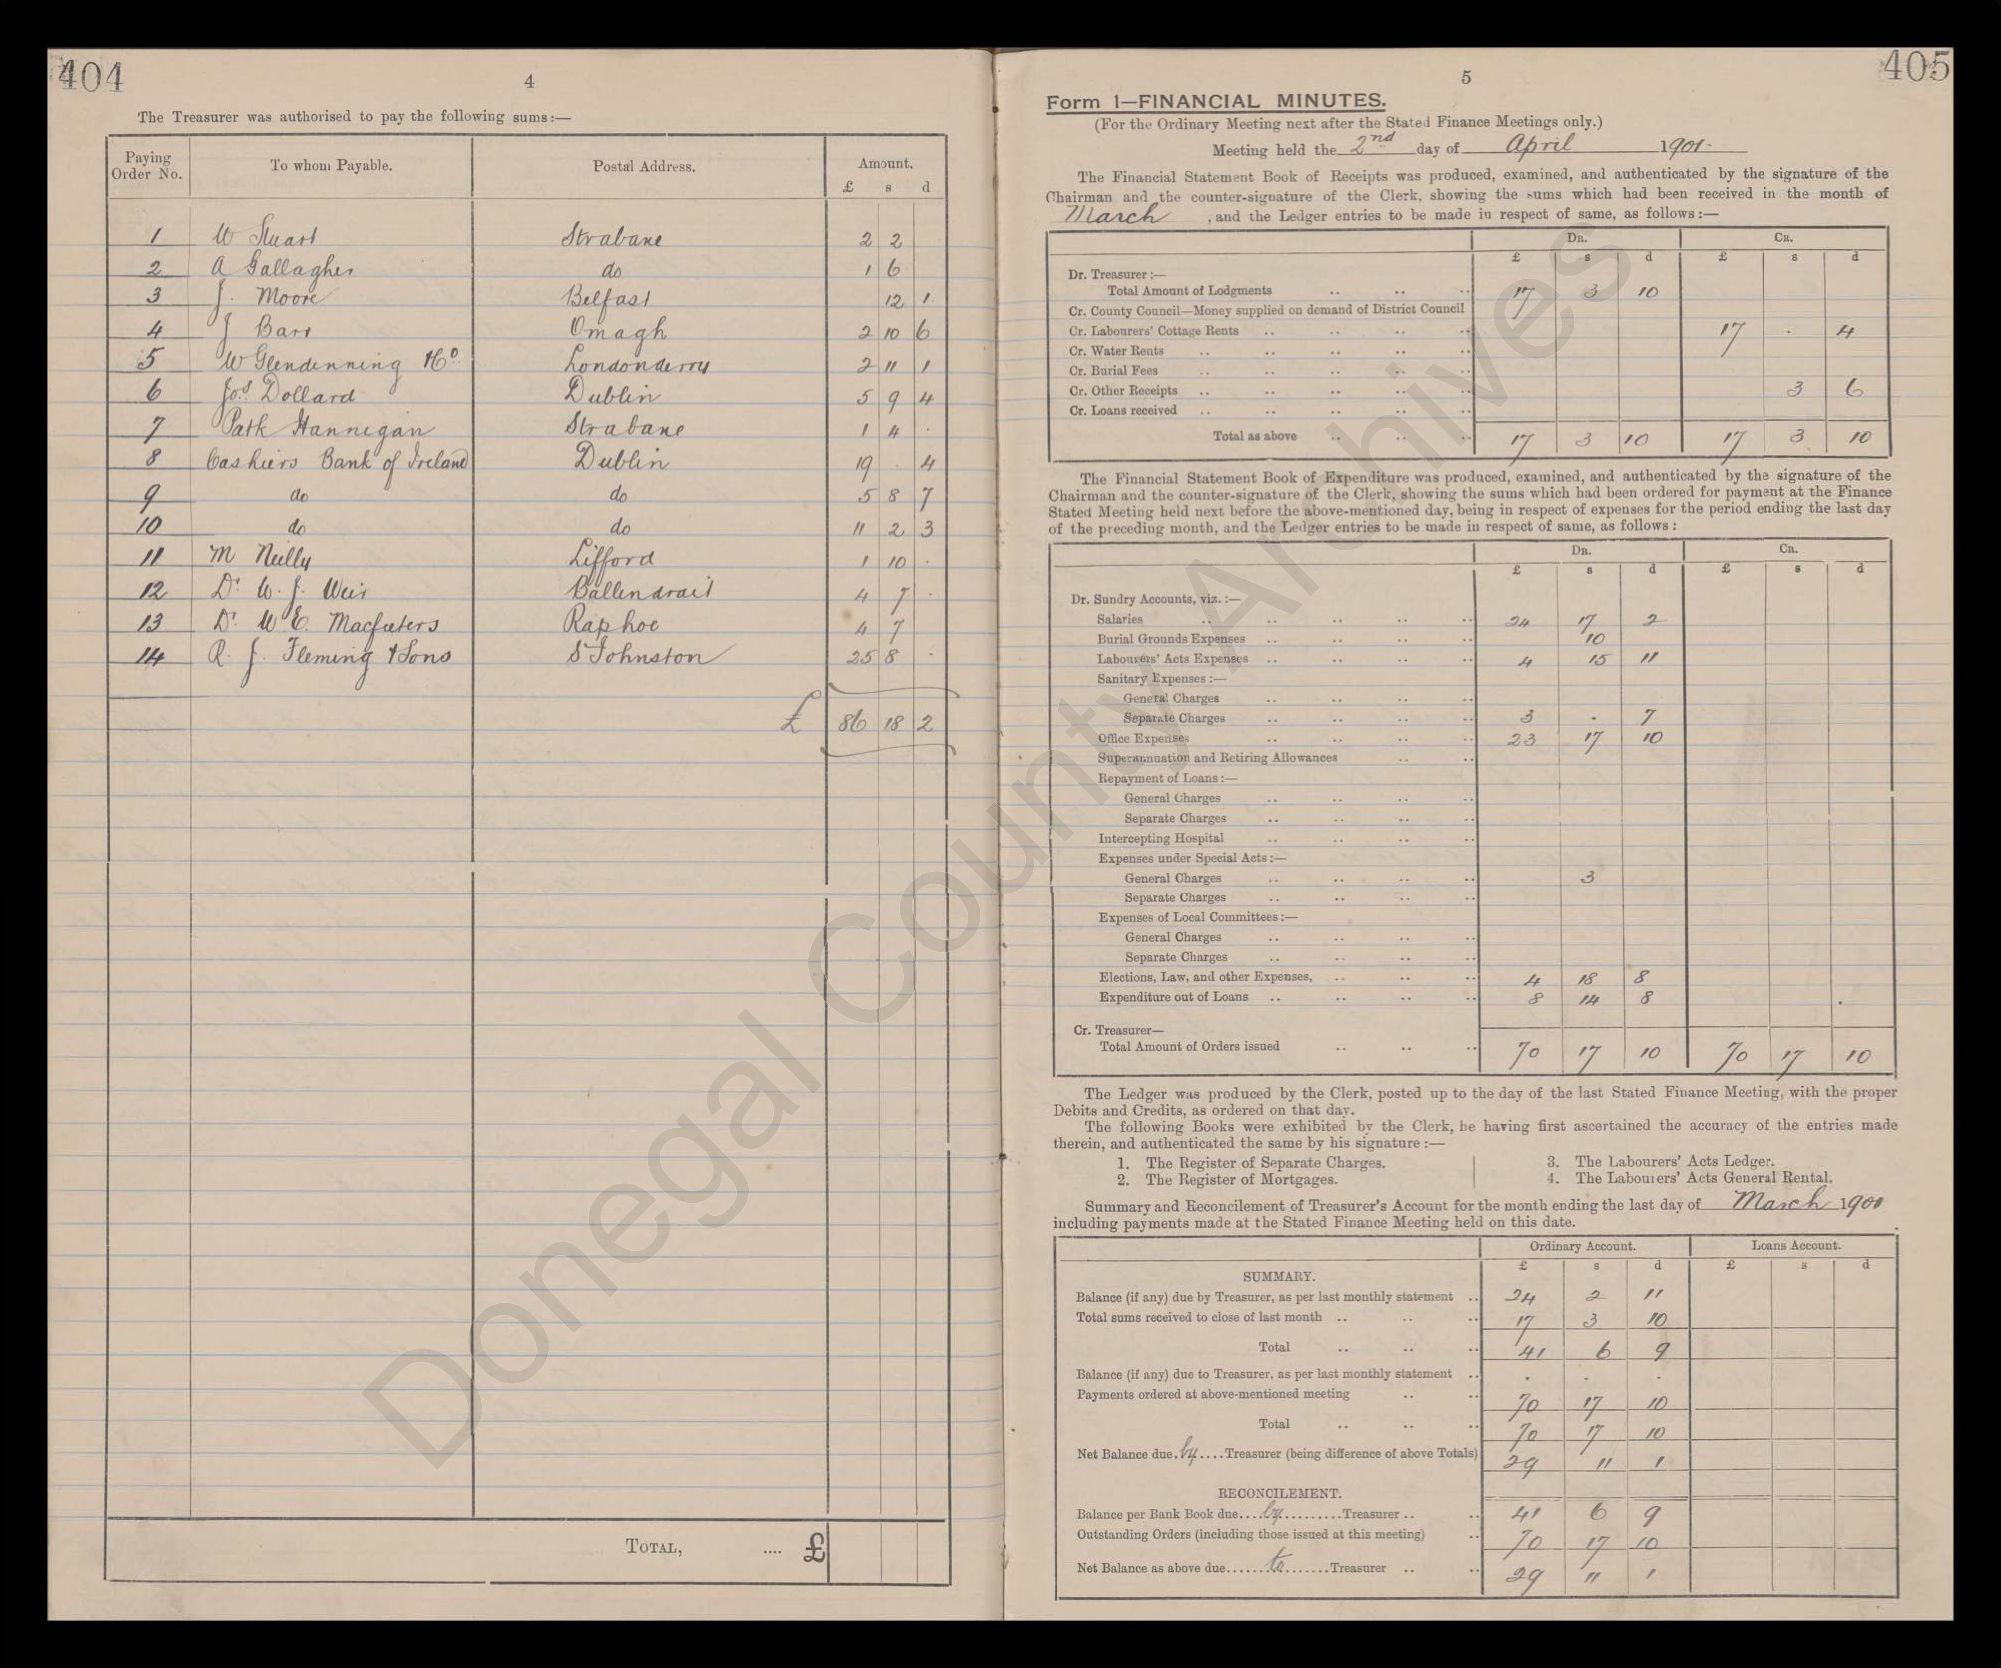 404
4
The Treasurer was authorised to pay the following sums:—
Paying Order No. To whom Payable. Postal Address. Amount.
£ s d
1 W Stuart Strabane 2 2
2 A Gallagher do 1 6
3 J. Moore Belfast 12 1
4 J Barr Omagh 2 10 6
5 W Glendenning Londonderry 2 11 1
6 Jos Dollard Dublin 5 9 4
7 Patk Hannigan Strabane 1 4 .
8 Cashiers Bank of Ireland Dublin 19 . 4
9 do do 5 8 7
10 do do 11 2 3
11 M Neilly Lifford 1 10 .
12 Dr W. J. Weir Ballindrait 4 7 .
13 Dr W. E. Macfeeters Raphoe 4 7
14 R. J. Fleming & Sons St Johnston 25 8 .
£ 86 18 2
TOTAL, .... £
405
5
Form 1—FINANCIAL MINUTES.
(For the Ordinary Meeting next after the Stated Finance Meetings only.)
Meeting held the 2nd day of April 1901.
The Financial Statement Book of Receipts was produced, examined, and authenticated by the signature of the
Chairman and the counter-signature of the Clerk, showing the sums which had been received in the month of
March , and the Ledger entries to be made in respect of same, as follows:—
DR. CR.
£ s d £ s d
Dr. Treasurer:—
Total Amount of Lodgments .. .. .. 17 3 10
Cr. County Council—Money supplied on demand of District Council
Cr. Labourers' Cottage Rents .. .. .. .. 17 . 4
Cr. Water Rents .. .. .. .. ..
Cr. Burial Fees .. .. .. .. ..
Cr. Other Receipts .. .. .. .. .. 3 6
Cr. Loans received .. .. .. .. ..
Total as above .. .. .. 17 3 10 17 3 10
The Financial Statement Book of Expenditure was produced, examined, and authenticated by the signature of the
Chairman and the counter-signature of the Clerk, showing the sums which had been ordered for payment at the Finance
Stated Meeting held next before the above-mentioned day, being in respect of expenses for the period ending the last day
of the preceding month, and the Ledger entries to be made in respect of same, as follows:
DR. CR.
£ s d £ s d
Dr. Sundry Accounts, viz.:—
Salaries .. .. .. .. .. 24 17 2
Burial Grounds Expenses .. .. .. .. 10
Labourers' Acts Expenses .. .. .. .. 4 15 11
Sanitary Expenses:—
General Charges .. .. .. ..
Separate Charges .. .. .. .. 3 . 7
Office Expenses .. .. .. .. 23 17 10
Superannuation and Retiring Allowances .. ..
Repayment of Loans:—
General Charges .. .. .. ..
Separate Charges .. .. .. ..
Intercepting Hospital .. .. .. ..
Expenses under Special Acts:—
General Charges .. .. .. .. 3
Separate Charges .. .. .. ..
Expenses of Local Committees:—
General Charges .. .. .. ..
Separate Charges .. .. .. ..
Elections, Law, and other Expenses, .. .. .. 4 18 8
Expenditure out of Loans .. .. .. .. 8 14 8
Cr. Treasurer—
Total Amount of Orders issued .. .. .. 70 17 10 70 17 10
The Ledger was produced by the Clerk, posted up to the day of the last Stated Finance Meeting, with the proper
Debits and Credits, as ordered on that day.
The following Books were exhibited by the Clerk, he having first ascertained the accuracy of the entries made
therein, and authenticated the same by his signature:—
1. The Register of Separate Charges. 3. The Labourers' Acts Ledger.
2. The Register of Mortgages. 4. The Labourers' Acts General Rental.
Summary and Reconcilement of Treasurer's Account for the month ending the last day of March 1901
including payments made at the Stated Finance Meeting held on this date.
Ordinary Account. Loans Account.
£ s d £ s d
SUMMARY.
Balance (if any) due by Treasurer, as per last monthly statement .. 24 2 11
Total sums received to close of last month .. .. .. 17 3 10
Total .. .. .. 41 6 9
Balance (if any) due to Treasurer, as per last monthly statement .. . . .
Payments ordered at above-mentioned meeting .. .. 70 17 10
Total .. .. .. 70 17 10
Net Balance due by .... Treasurer (being difference of above Totals) 29 11 1
RECONCILEMENT.
Balance per Bank Book due.... by .........Treasurer .. .. 41 6 9
Outstanding Orders (including those issued at this meeting) .. 70 17 10
Net Balance as above due...... to .......Treasurer .. .. 29 11 1
Donegal County Archives